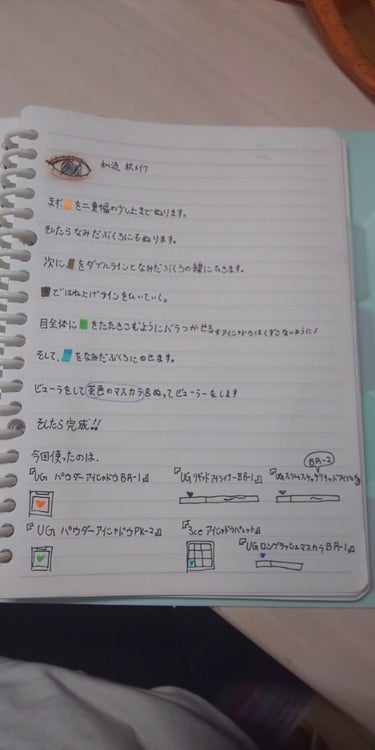 私流 秋メイク
まず を二重幅の少し上までぬります。
そしたらなみだぶくろにもぬります。
次に をダブルラインとなみだぶくろの線にひきます。
ではね上げラインをひいていく。
目全体に をたたきこむようにパラつかせる ※アイシャドウはくずさないように!
そして、 をなみだぶくろにのせます。
ビューラをして茶色のマスカラをぬってビューラーをします
そしたら完成!!
今回使ったのは、
BR-2
『UG パウダーアイシャドウ BR-1』 『UG リキッドアイライナーBR-1』 『UG スリムスケッチ
『UG パウダーアイシャドウ PK-2』 『3ce アイシャドウパレット』
『UG ロングラッシュマスカラ BR-1』